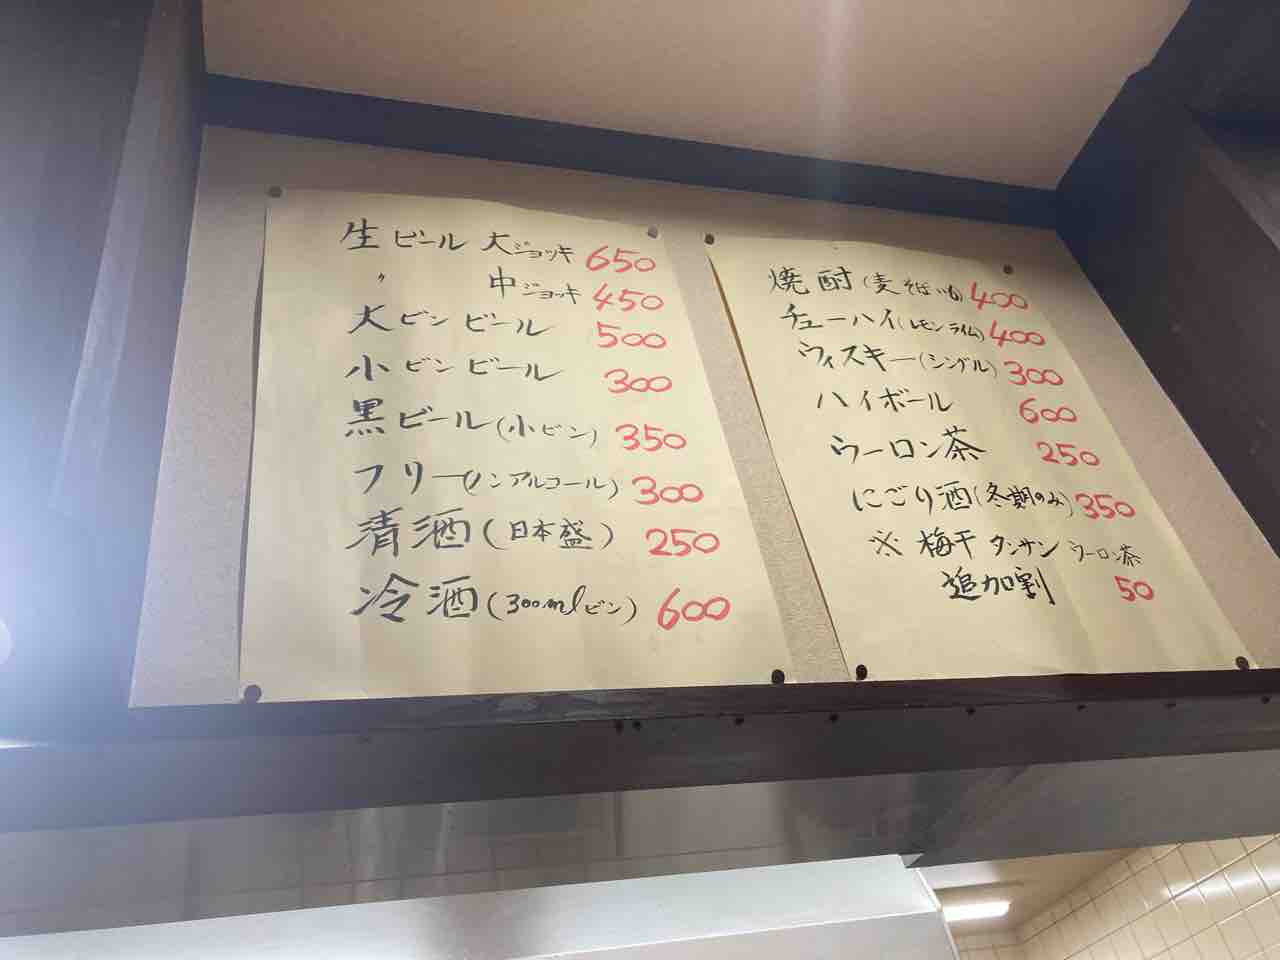 生ビール 大ジョッキ 650
〃 中ジョッキ 450
大ビンビール 500
小ビンビール 300
黒ビール(小ビン) 350
フリー(ノンアルコール) 300
清酒(日本盛) 250
冷酒(300mlビン) 600
焼酎(麦そばいも) 400
チューハイ(レモンライム) 400
ウィスキー(シングル) 300
ハイボール 600
ウーロン茶 250
にごり酒(冬期のみ) 350
※ 梅干 タンサン ウーロン茶
追加割 50